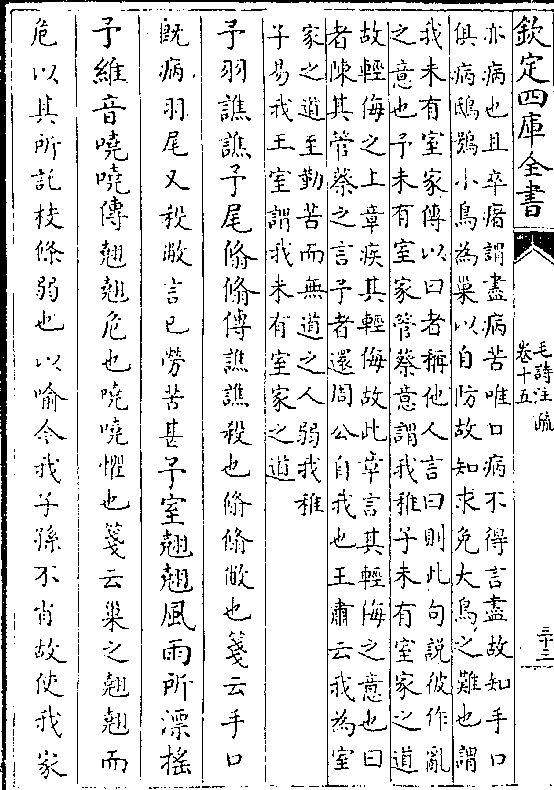 欽定四庫全書
毛詩注疏
卷十五
三十三
亦病也且卒瘏謂盡病苦唯口病不得言盡故知手口
俱病鴟鴞小鳥為巢以自防故知求免大鳥之難也謂
我未有室家傳以曰者稱他人言曰則此句說彼作亂
之意也予未有室家管蔡意謂我稚子未有室家之道
故輕侮之上章疾其輕侮故此章言其輕侮之意也曰
者陳其管蔡之言予者還周公自我也王肅云我為室
家之道至勤苦而無道之人弱我稚
子易我王室謂我未有室家之道
予羽譙譙予尾翛翛傳譙譙殺也翛翛敝也箋云手口
既病羽尾又殺敝言已勞苦甚予室翹翹風雨所漂搖
予維音嘵嘵傳翹翹危也嘵嘵懼也箋云巢之翹翹而
危以其所託枝條弱也以喻今我子孫不肖故使我家